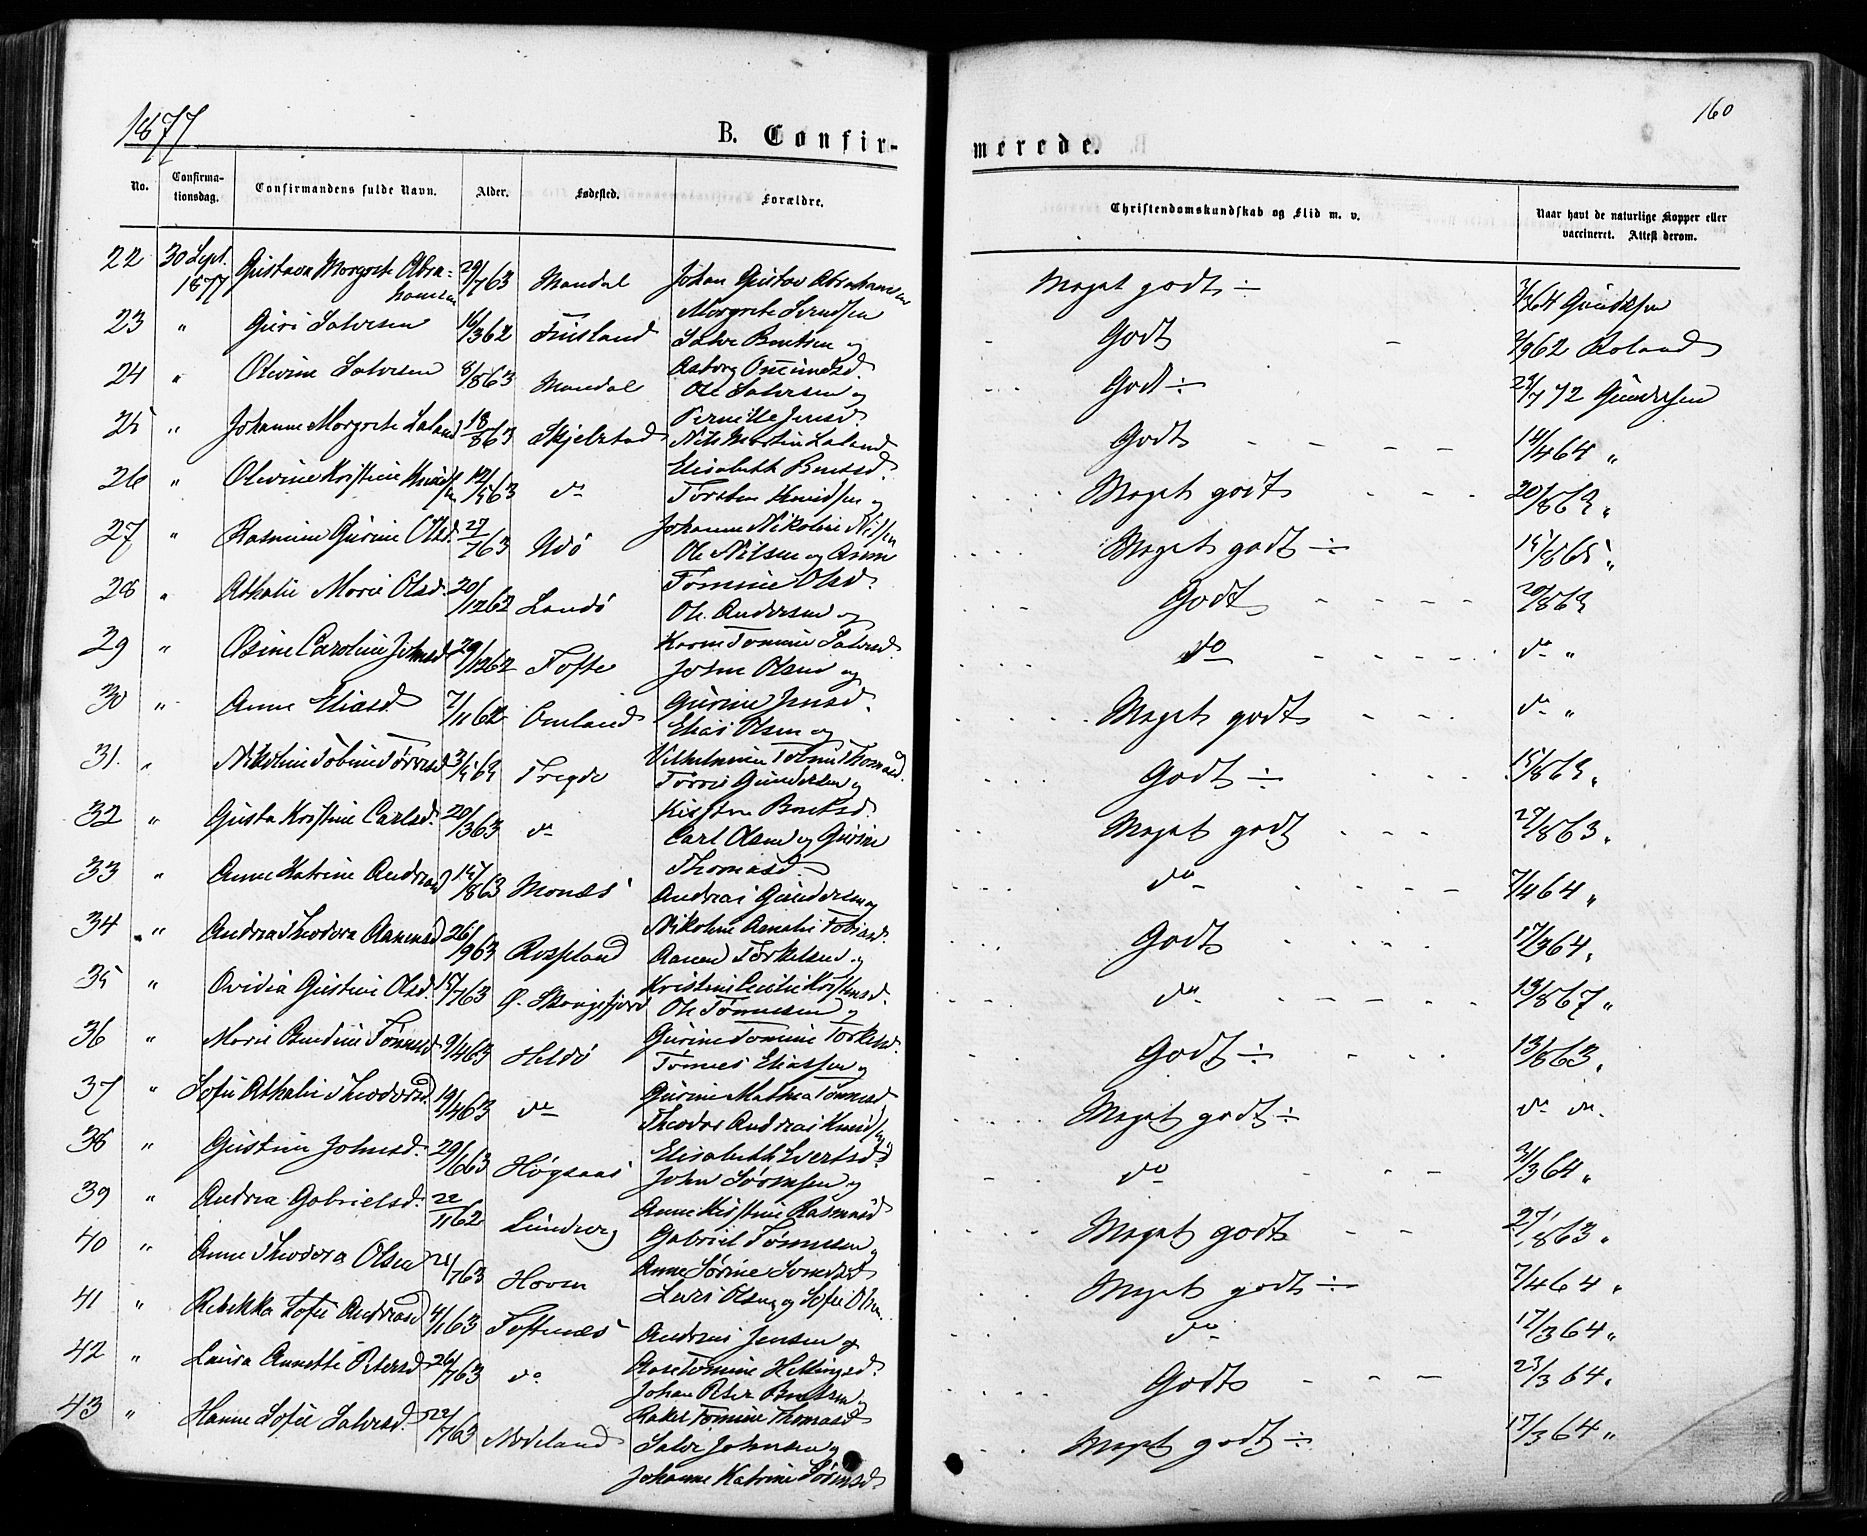 1877
160
B. Confir-
merede.
No.
Confirma-
tionsdag.
Confirmandens fulde Navn.
Alder.
Fødested.
Forældre.
Christendomskundskab og Flid m. v.
Naar havt de naturlige Kopper eller
vaccineret. Attest derom.
22 30 Sept. Gustava Margrete Abra- 29/7 63 Mandal Johan Gustav Abrahamsen Meget godt ÷ 7/3 64 Gundersen
1877 hamsen Margrete Svendsen
23 " Guri Salvesen 16/3 62 Finsland Salve Bentsen og Godt - 3/9 62 Roland
Aaborg Omundsd.
24 " Olevine Salvesen 8/8 63 Mandal Ole Salvesen og Godt ÷ 29/7 72 Gundersen
Pernille Jensd.
25 " Johanne Margrete Laland 18/8 63 Skjelstad Nils Martin Laland Godt - - - 14/4 64 "
Elisabeth Bentsd.
26 " Olevine Kristine Knuds 12/5 63 do Torsten Knudsen og Meget godt - - - 20/8 63 "
sen Johanne Nikoline Nilsen
27 " Rasmine Gurine Olsd. 27/7 63 Udö Ole Nilsen og Anne Meget godt ÷ 15/8 65 "
Tomine Olsd.
28 " Athalie Marie Olsd. 20/12 62 Landö Ole Andersen og Godt - - - 20/8 63
Karen Tomine Salvesd.
29 " Osine Caroline Johnsd. 29/12 62 Tofte John Olsen og do - - - do "
Gurine Jensd.
30 " Anne Eliasd. 7/11 62 Omland Elias Olsen og Meget godt - - - do "
Vilhelmine Tobine Thomasd.
31. " Nikoline Tobine Torresd. 3/5 63 Tregde Torres Gundersen og Godt ÷ 15/8 63 "
Kirsten Bentsd.
32 " Gusta Kristine Carlsd. 20/3 63 do Carl Olsen og Gurine Meget godt - - - 27/8 63 "
Thomasd.
33 " Anne Katrine Andreasd 15/8 63 Monæs Andreas Gundersen og do - - - 7/4 64 "
Nikoline Amalie Tobiasd.
34 " Andrea Theodora Aanensd 26/9 63 Rossland Aanen Torkelsen og Godt - - - 17/3 64 "
Kristine Cecilie Kristensd.
35 " Ovidia Gustine Olsd. 15/7 63 Ø. Skogsfjord Ole Tønnesen og do - - - 13/8 67 "
Gurine Tomine Torkelsd.
36 " Marie Bendine Tønnesd 9/4 63 Hildö Tønnes Eliassen og Godt ÷ 13/8 63 "
Gurine Mathea Tønnesd
37 " Sofie Athalie Theodorsd. 19/4 63 do Theodor Andreas Knudsen Meget godt ÷ do do.
Elisabeth Evertsd.
38 " Gustine Johnsd. 29/6 63 Høgsaas John Sørensen og do - - - 31/3 64 "
Anne Kirstine Rasmusd
39 " Andrea Gabrielsd. 22/11 62 Lundevig Gabriel Tønnesen og Meget godt - - 27/8 63 "
Anne Sørine Svendsd
40 " Anne Theodora Olsen 21/7 63 Hoven Lars Olsen og Sofie Olsen Meget godt ÷ 7/4 64 "
41 " Rebekka Sofie Andreasd 4/1 63 Toftenæs Andreas Jensen og do 17/3 64 "
Aase Tomine Hellingsd.
42 " Laura Annette Petersd 26/7 63 do Johan Peter Bentsen og Godt - - - 23/3 64 "
Rakel Tomine Thomasd
43 " Hanne Sofie Salvesd. 22/7 63 Nodeland Salve Johnsen og Meget godt ÷ 17/3 64 "
Johanne Katrine Sørensd